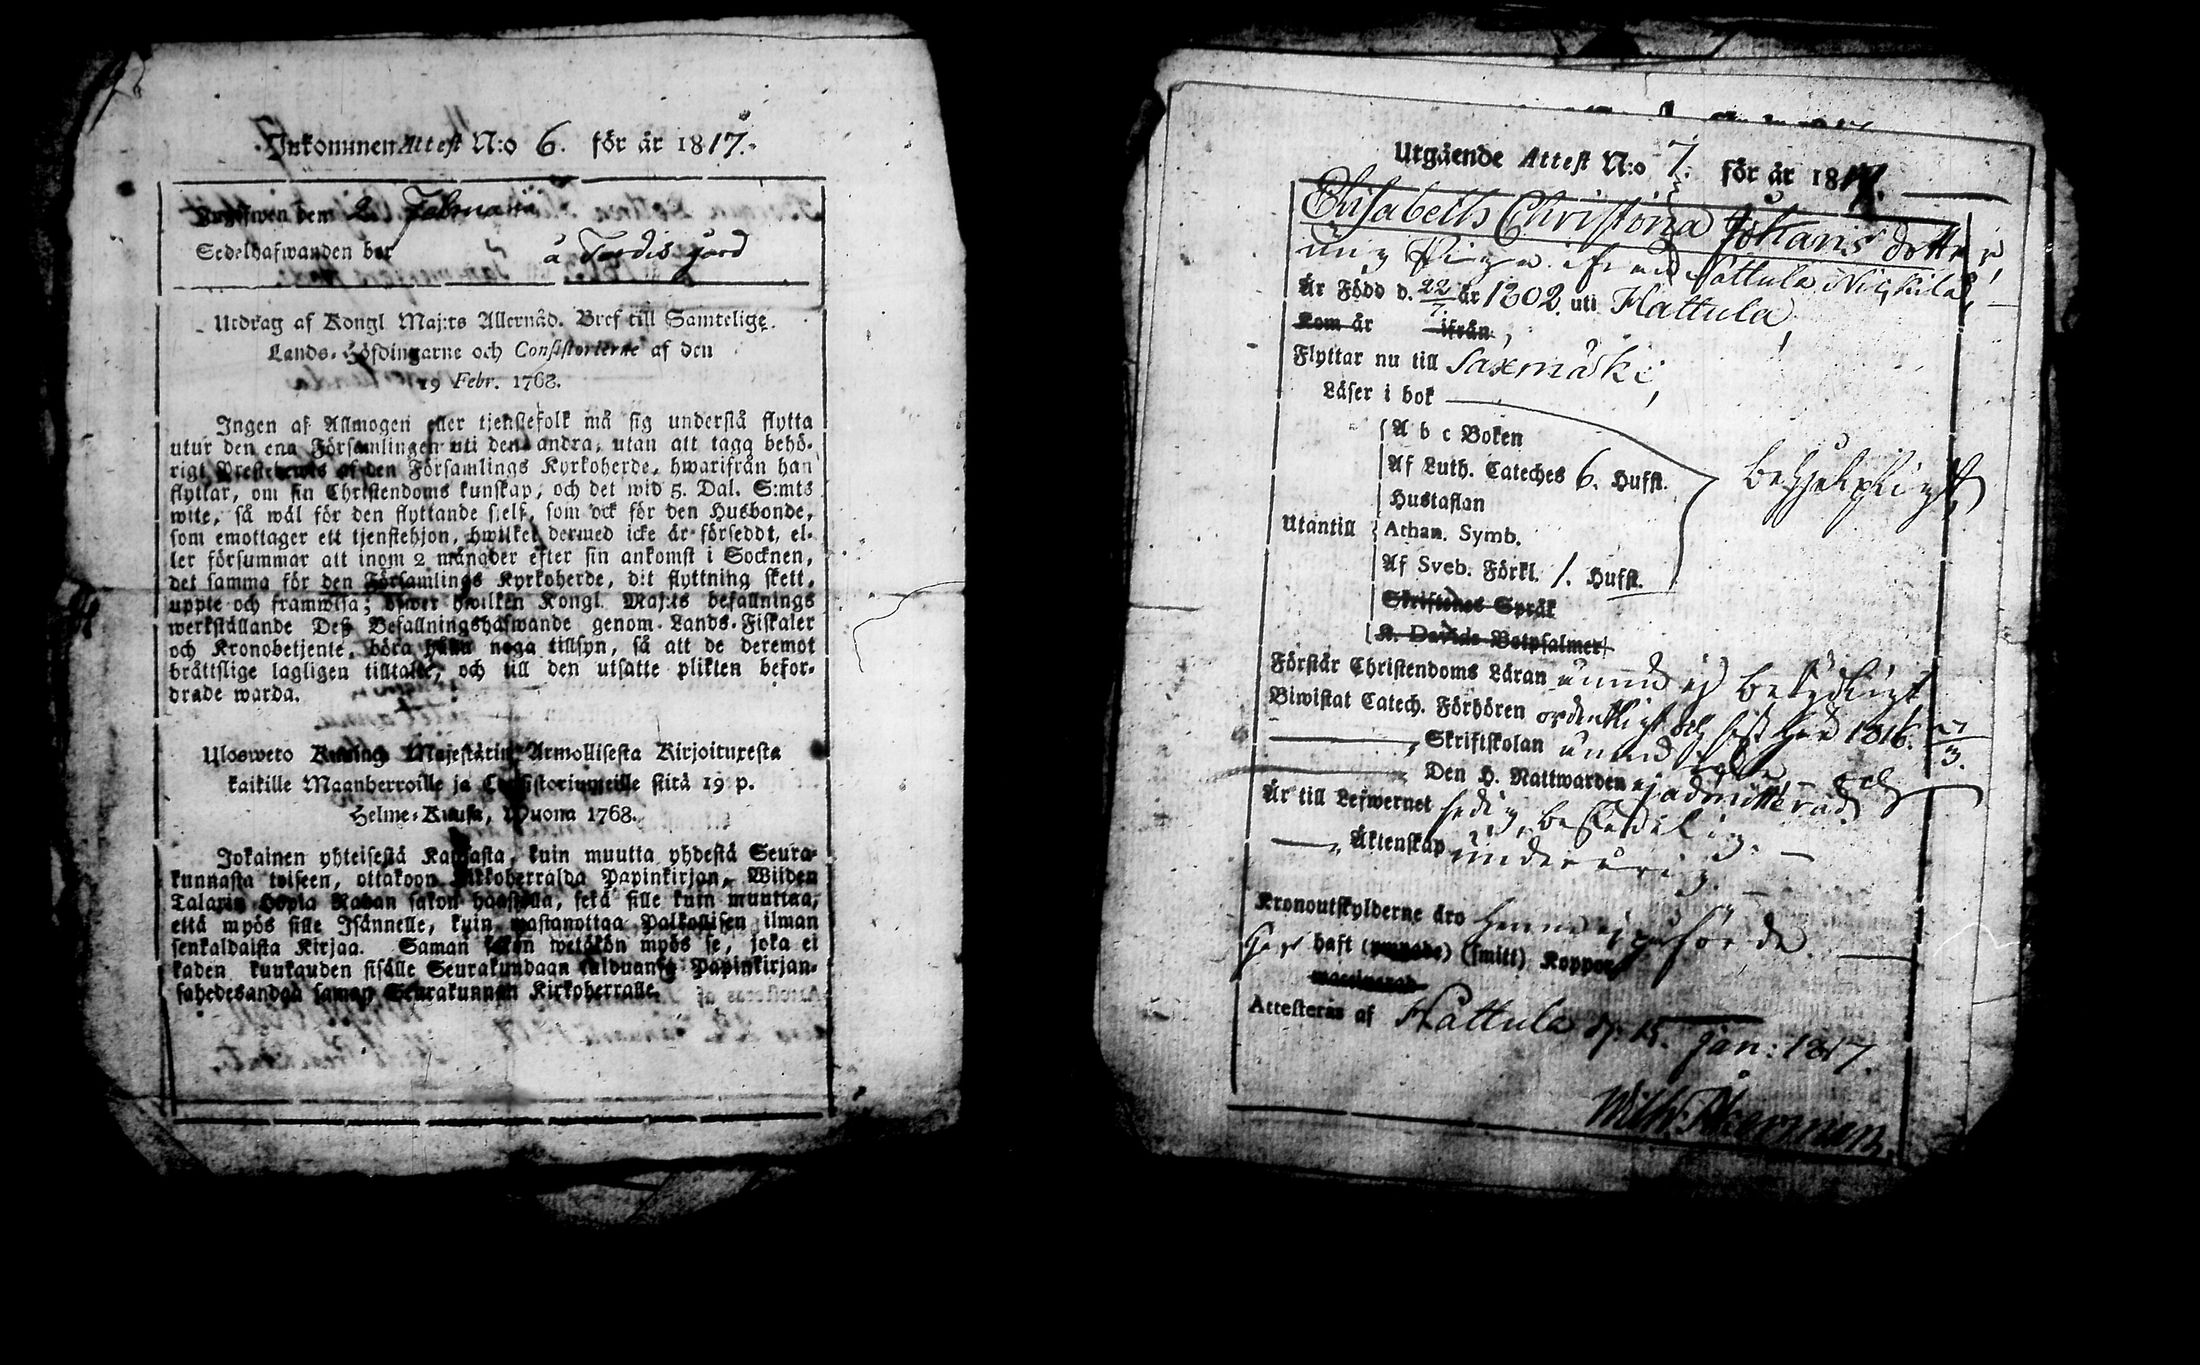 Inkommen Attest N:o 6. för år 1817.
Uppwiswen dem 2. Februarii
Sedelhafwanden bor å Tordis gård
Utdrag af Kongl Maj:ts Allernåd. Bref till Samtelige
Lands-Höfdingarne och Consistorierne af den
19 Febr. 1768.
Ingen af Allmogen eller tjenstefolk må sig understå flytta
utur den ena Församlingen uti den andra, utan att taga behö-
rigt Prestebewis af den Församlings Kyrkoherde, hwarifrån han
flyttar, om sin Christendoms kunskap, och det wid 5. Dal. S:mts
wite, så wäl för den flyttande sjelf, som ock för den Husbonde,
som emottager ett tjenstehjon, hwilket dermed icke är försedt, el-
ler försummar att inom 2 månader efter sin ankomst i Socknen,
det samma för den Församlings Kyrkoherde, dit flyttning skett,
uppte och framwisa; öfwer hwilken Kongl. Maj:ts befallnings
werkställande Deß Befallningshafwande genom Lands-Fiskaler
och Kronobetjente, böra hålla noga tillsyn, så att de deremot
bråttslige lagligen tilltalte, och till den utsatte plikten befor-
drade warda.
Ulosweto Kuningl. Majestätin Armollisesta Kirjoituxesta
kaikille Maanherroille ja Consistoriumeille siitä 19 p.
Helme-Kuusa, Wuona 1768.
Jokainen yhteisestä Kansasta, kuin muutta yhdestä Seura-
kunnasta toiseen, ottakoon Kirkoherralda Papinkirjan, Wiiden
Talarin Hopia Rahan sakon haastolla, sekä sille kuin muuttaa,
että myös sille Isännelle, kuin wastanottaa Palkollisen ilman
senkaldaista Kirjaa. Saman sakon wetäkön myös se, joka ei
kahden kuukauden sisälle Seurakundaan tulduansa Papinkirjan-
sa hedesandaa saman Seurakunnan Kirkoherralle.
Utgående Attest N:o 7. för år 1817.
Elisabeth Christina Johans dotter
ung Piga ifrån Hattula Nickilä,
Är Född d. 22/7 år 1802. uti Hattula,
Kom år ifrån,
Flyttar nu till Saxmäki,
Läser i bok
A b c Boken
Af Luth. Cateches 6. Hufst. behjelpligt
Hustaflan
Utantill Athan. Symb.
Af Sveb. Förkl. 1. Hufst.
Skriftenes Språk
K. Davids Botpsalmer
Förstår Christendoms Läran ännu ej betydligt
Biwistat Catech. Förhören ordentligt och sist här 1816. 27/3.
Skriftskolan ännu
Den H. Nattwarden ej admitterad
Är till Lefwernet sedig, beskedelig. och
Äktenskap underårig.
Kronoutskylderne äro henne ej påförde
Har haft (ympade) (smitt) Koppor
vaccinerad
Attesteras af Hattula d. 15. Jan: 1817.
Wilh: Åkerman